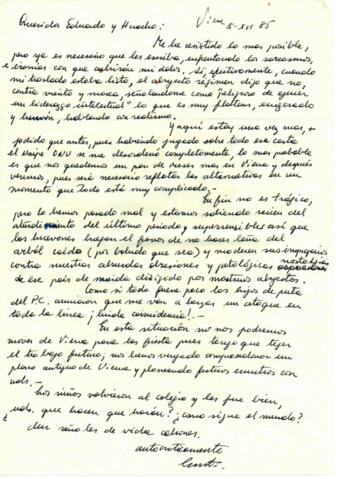 Queridos Eduardo y Nuncho: Viena 5-XII 85
Me he resistido lo más posible,
pero ya es necesario que les escriba, enfrentando los sarcasmos,
e ironías con que cubrirán mi dolor. Sí, efectivamente, cuando
mi traslado estaba listo, el abyecto régimen dijo que no,
contra viento y marea, señalándome como "peligro de ejercer
un liderazgo intelectual" lo que es muy exagerado
y hablando con realismo.
Y aquí estoy una vez más, +
jodido que antes, pues habiendo jugado sobre todo esa carta
el viaje ONU se me desmoronó completamente, lo más probable
es que nos quedemos un par de meses más en Viena y después
veremos, pues será necesario replotar las alternativas en un
momento que todo está muy complicado.-
En fin no es trágico,
pero lo hemos pasado mal y estamos saliendo recién del
aturdimiento del último período y superamos así que
los huevones hagan el favor de no hacer leña del
árbol caído (por boludo que sea) y moderen sus improperios
contra nuestras absurdas obsesiones y patológicas nostalgias
de ese país de mierda dirigido por monstruos abyectos.
Como si todo fuera poco los hijos de puta
del P.C. anuncian que me van a lanzar un ataque en
toda la línea ¡linda coincidencia!.-
En esta situación no nos podremos
mover de Viena para las fiestas pues tengo que tejer
el trabajo futuro; nos hemos vengado comprándonos un
plano antiguo de Viena y planeando futuros encuentros con
uds.-
Los niños volvieron al colegio y les fue bien,
uds. que hacen que harán? ¿como sigue el mundo?
den señales de vida cabrones.
autocríticamente